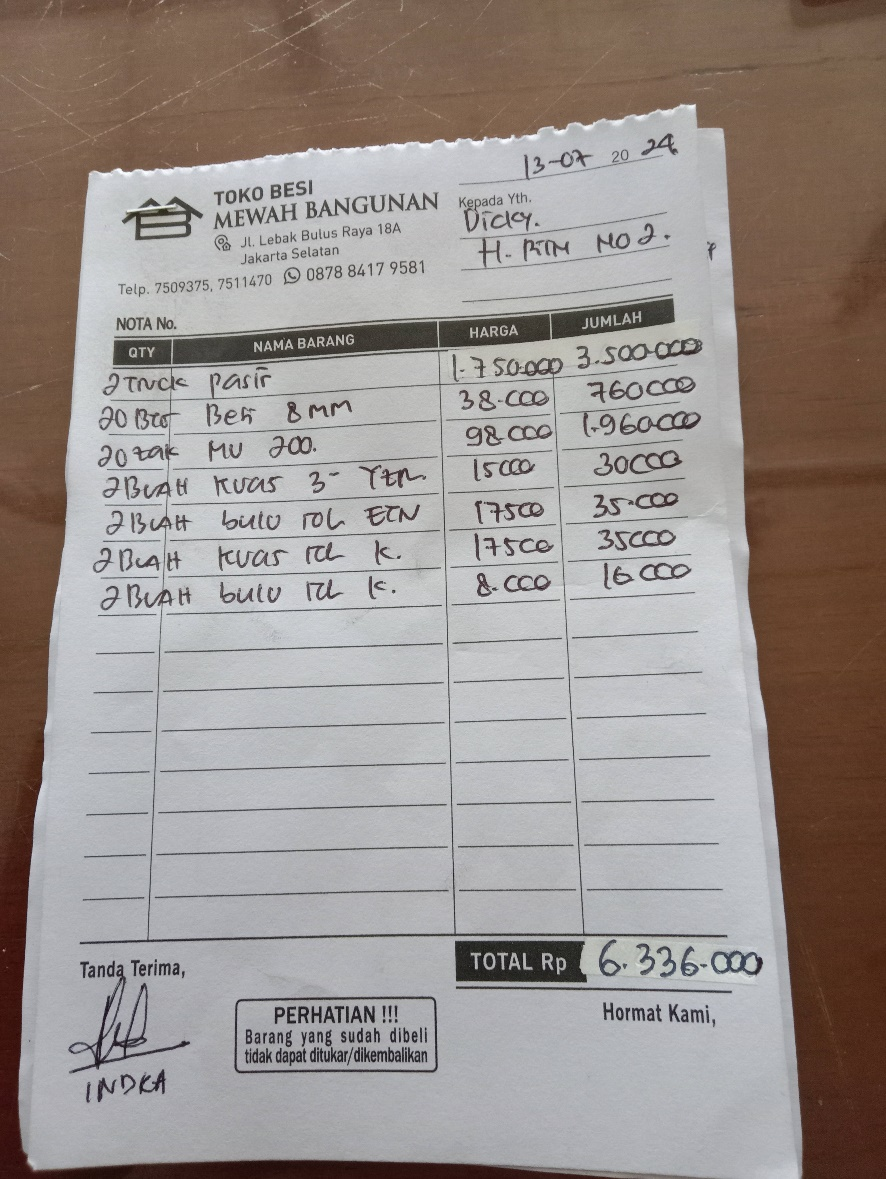 13-07 20 24
TOKO BESI
MEWAH BANGUNAN
Jl. Lebak Bulus Raya 18A
Jakarta Selatan
Telp. 7509375, 7511470 0878 8417 9581
Kepada Yth.
Dicky.
H. NO 2.
NOTA No.
QTY NAMA BARANG HARGA JUMLAH
2 Truck pasir 1.750.000 3.500.000
20 Besi 8 MM 38.000 760000
20 zak MU 200. 98.000 1.960.000
2 BUAH kuas 3" 15000 30000
2 BUAH bulu rol ETN 17500 35.000
2 BUAH kuas rol k. 17500 35000
2 BUAH bulu rol k. 8.000 16000
TOTAL Rp 6.336.000
Tanda Terima,
INDRA
PERHATIAN !!!
Barang yang sudah dibeli
tidak dapat ditukar/dikembalikan
Hormat Kami,